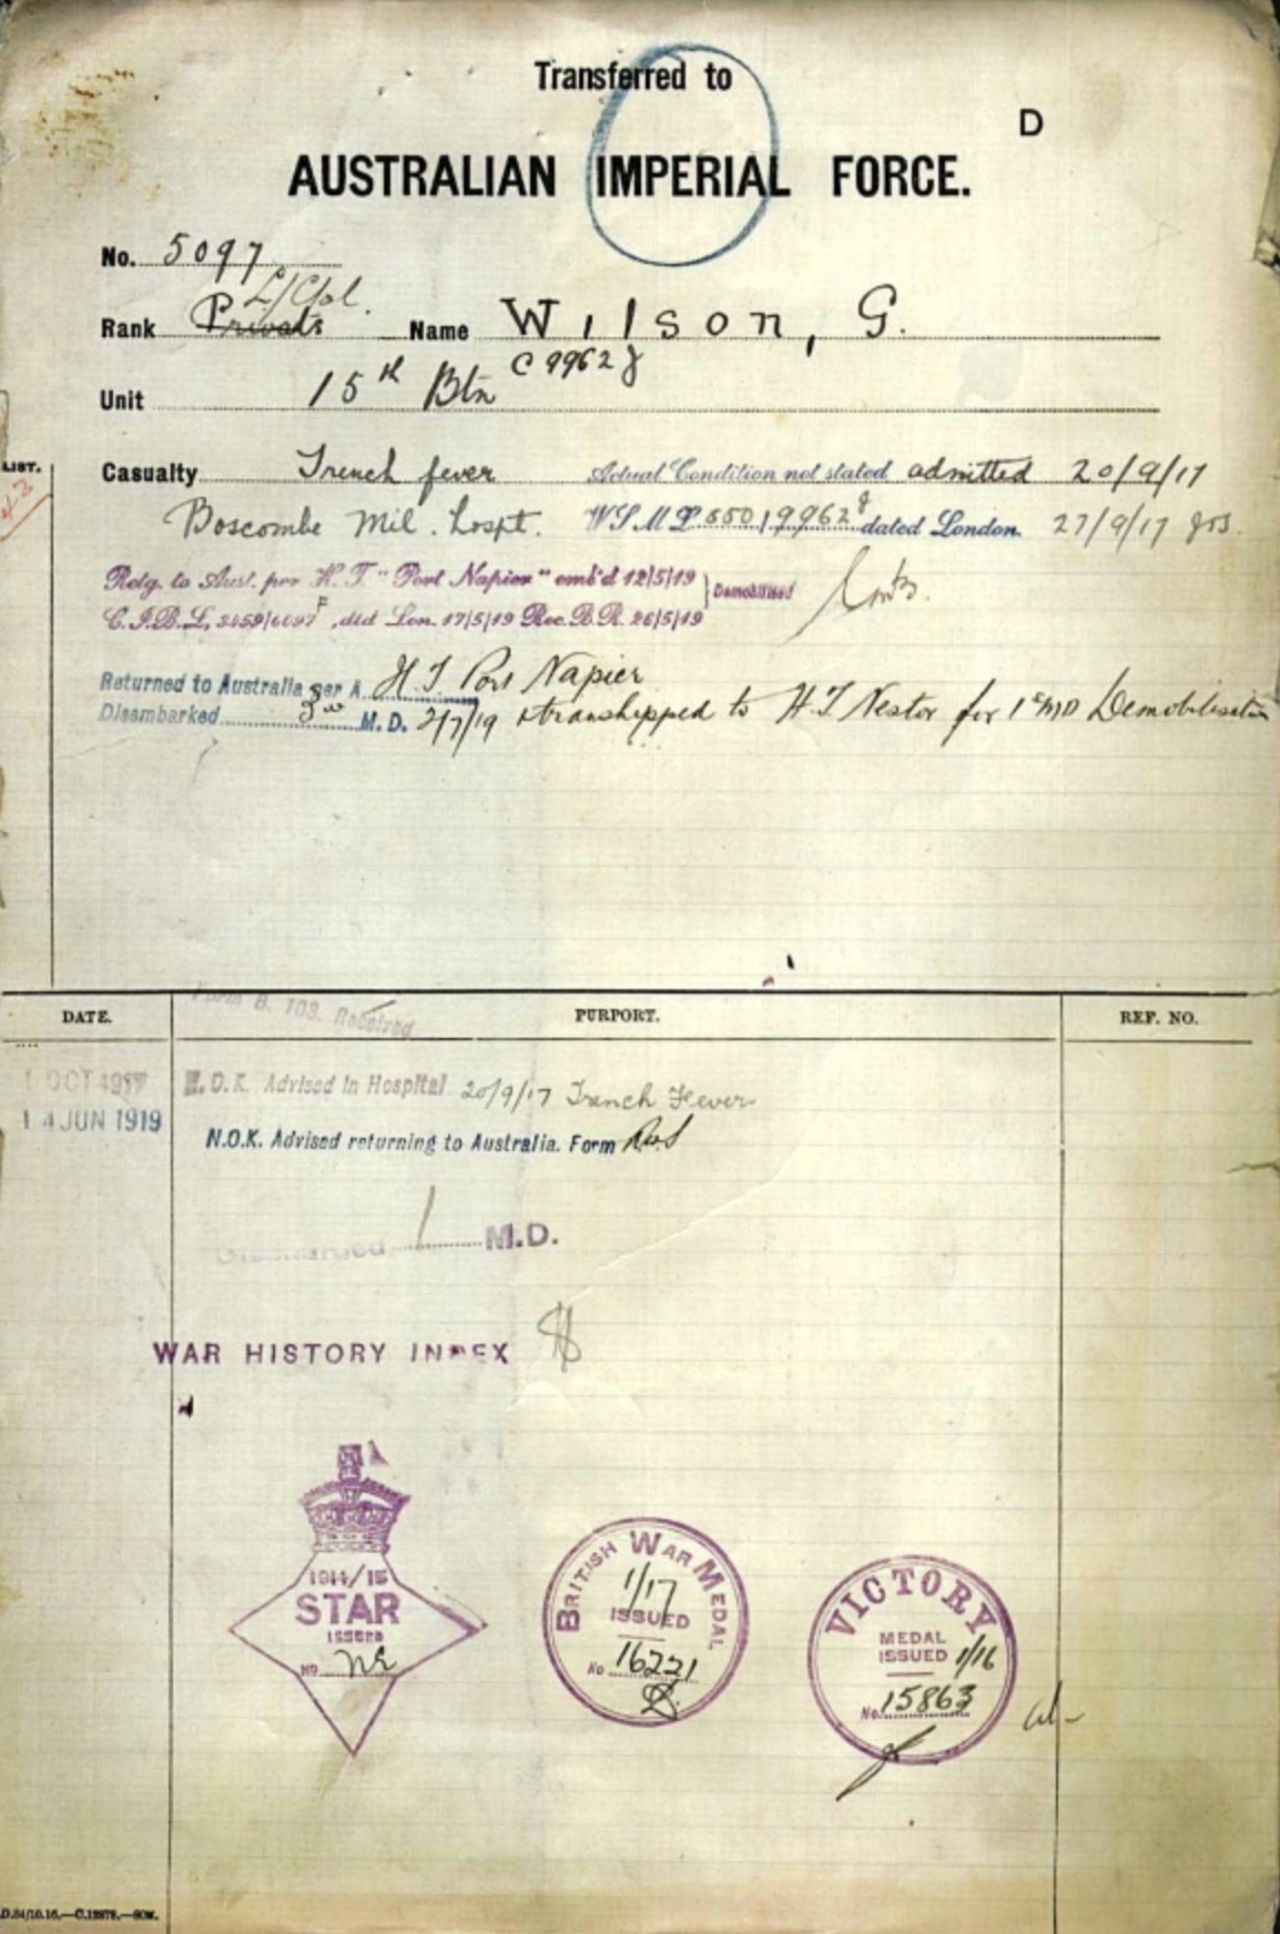 Transferred to
D
AUSTRALIAN IMPERIAL FORCE.
No. 5097
L/Cpl.
Rank Private Name Wilson, G.
C 9962 J
Unit 15th Btn
LIST.
Casualty Trench fever Actual Condition not stated admitted 20/9/17
Boscombe Mil. Hospt. dated London 27/9/17
Retg. to Aust. per H. T. "Port Napier" emb'd 12/5/19 Demobilised
C.I.B.L. dtd Lon. 17/5/19 Rec. B.R. 26/5/19
Returned to Australia per A H T Port Napier
Disembarked 3rd M. D. 2/7/19 transhipped to H.T Nestor for 1st MD Demobilisation
DATE. PURPORT. REF. NO.
Form B. 103. Received
1 OCT 1917 N.O.K. Advised in Hospital 20/9/17 Trench Fever
14 JUN 1919 N.O.K. Advised returning to Australia. Form
Disembarked 1 M.D.
WAR HISTORY INDEX
1914/15
STAR
ISSUED
NO NE
BRITISH WAR MEDAL
1/17
ISSUED
No 16221
VICTORY
MEDAL
ISSUED 1/16
No. 15863